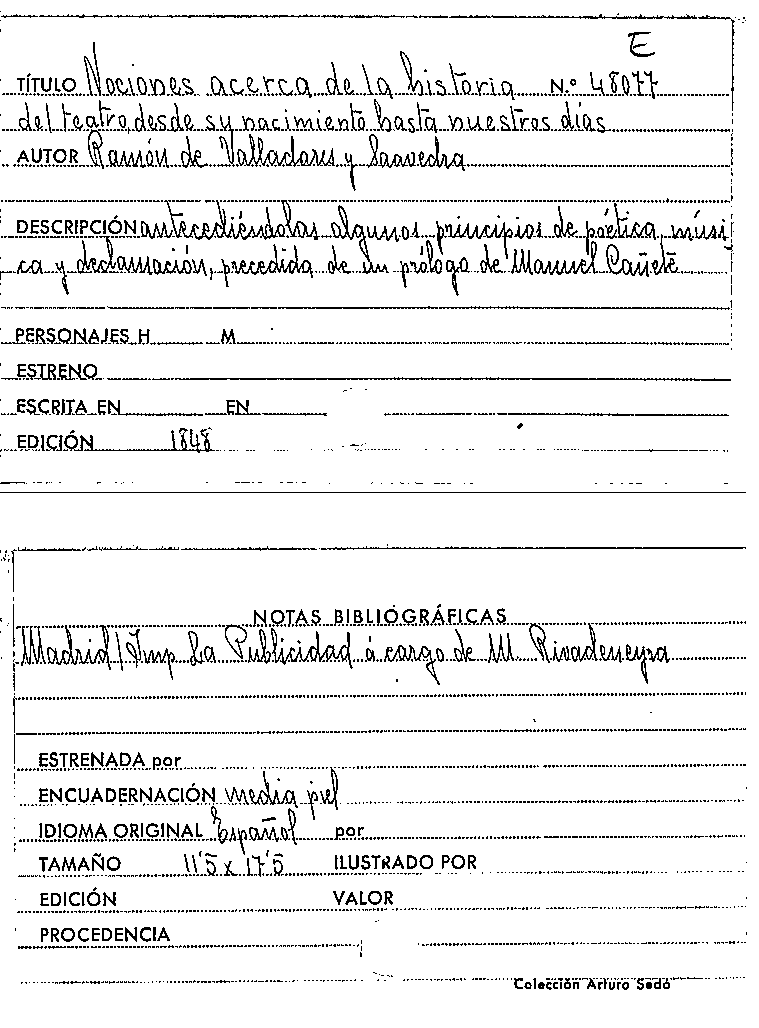 E
TÍTULO Nociones acerca de la historia N.º 48077
del teatro desde su nacimiento hasta nuestros días
AUTOR Ramón de Valladares y Saavedra
DESCRIPCIÓN antecediéndolas algunos principios de poética, músi
ca y declamación, precedida de un prólogo de Manuel Cañete
PERSONAJES H M
ESTRENO
ESCRITA EN EN
EDICIÓN 1848
NOTAS BIBLIOGRÁFICAS
Madrid/Imp La Publicidad á cargo de M. Rivadeneyra
ESTRENADA por
ENCUADERNACIÓN media piel
IDIOMA ORIGINAL Español por
TAMAÑO 11'5 x 17'5 ILUSTRADO POR
EDICIÓN VALOR
PROCEDENCIA
Colección Arturo Sedó